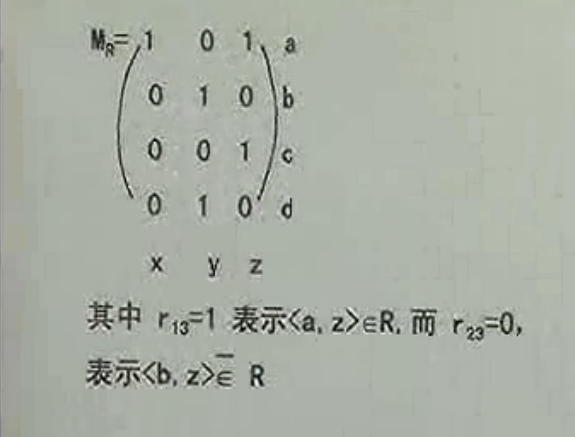 M_R= 1 0 1 a
0 1 0 b
0 0 1 c
0 1 0 d
x y z
其中 r₁₃=1 表示<a, z>∈R, 而 r₂₃=0,
表示<b, z>∈̅ R